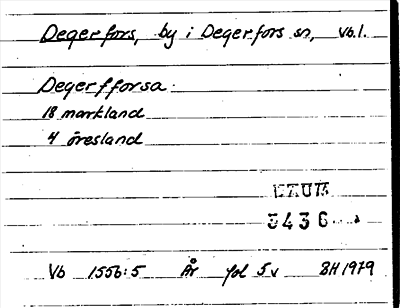 Degerfors, by i Degerfors sn, Vb.l.
Degerfforsa
18 markland
4 öresland
3436
Vb 1556:5 År fol 5v BH 1979